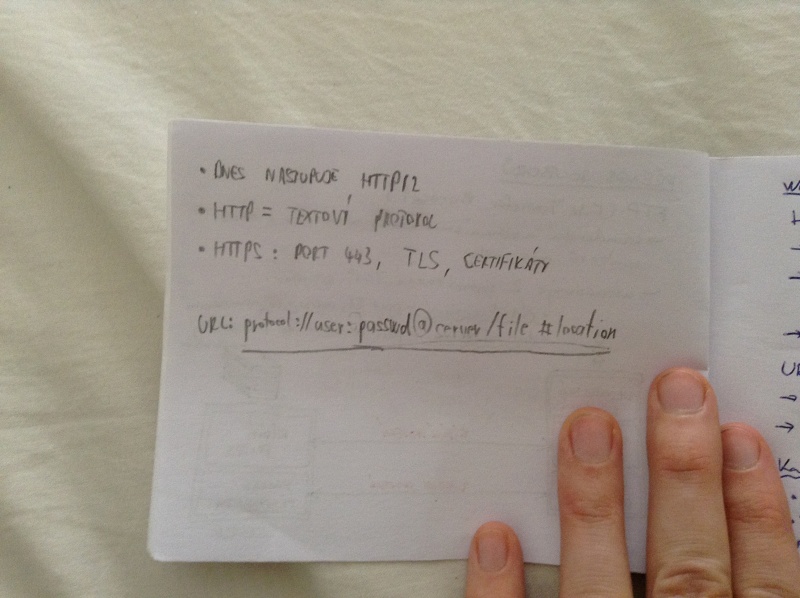 • DNES NASTUPUJE HTTP/2
• HTTP = TEXTOVÝ PROTOKOL
• HTTPS : PORT 443, TLS, CERTIFIKÁTY
URL: protocol://user:passwd@server/file #location
W
H
→
UR
→
Ka